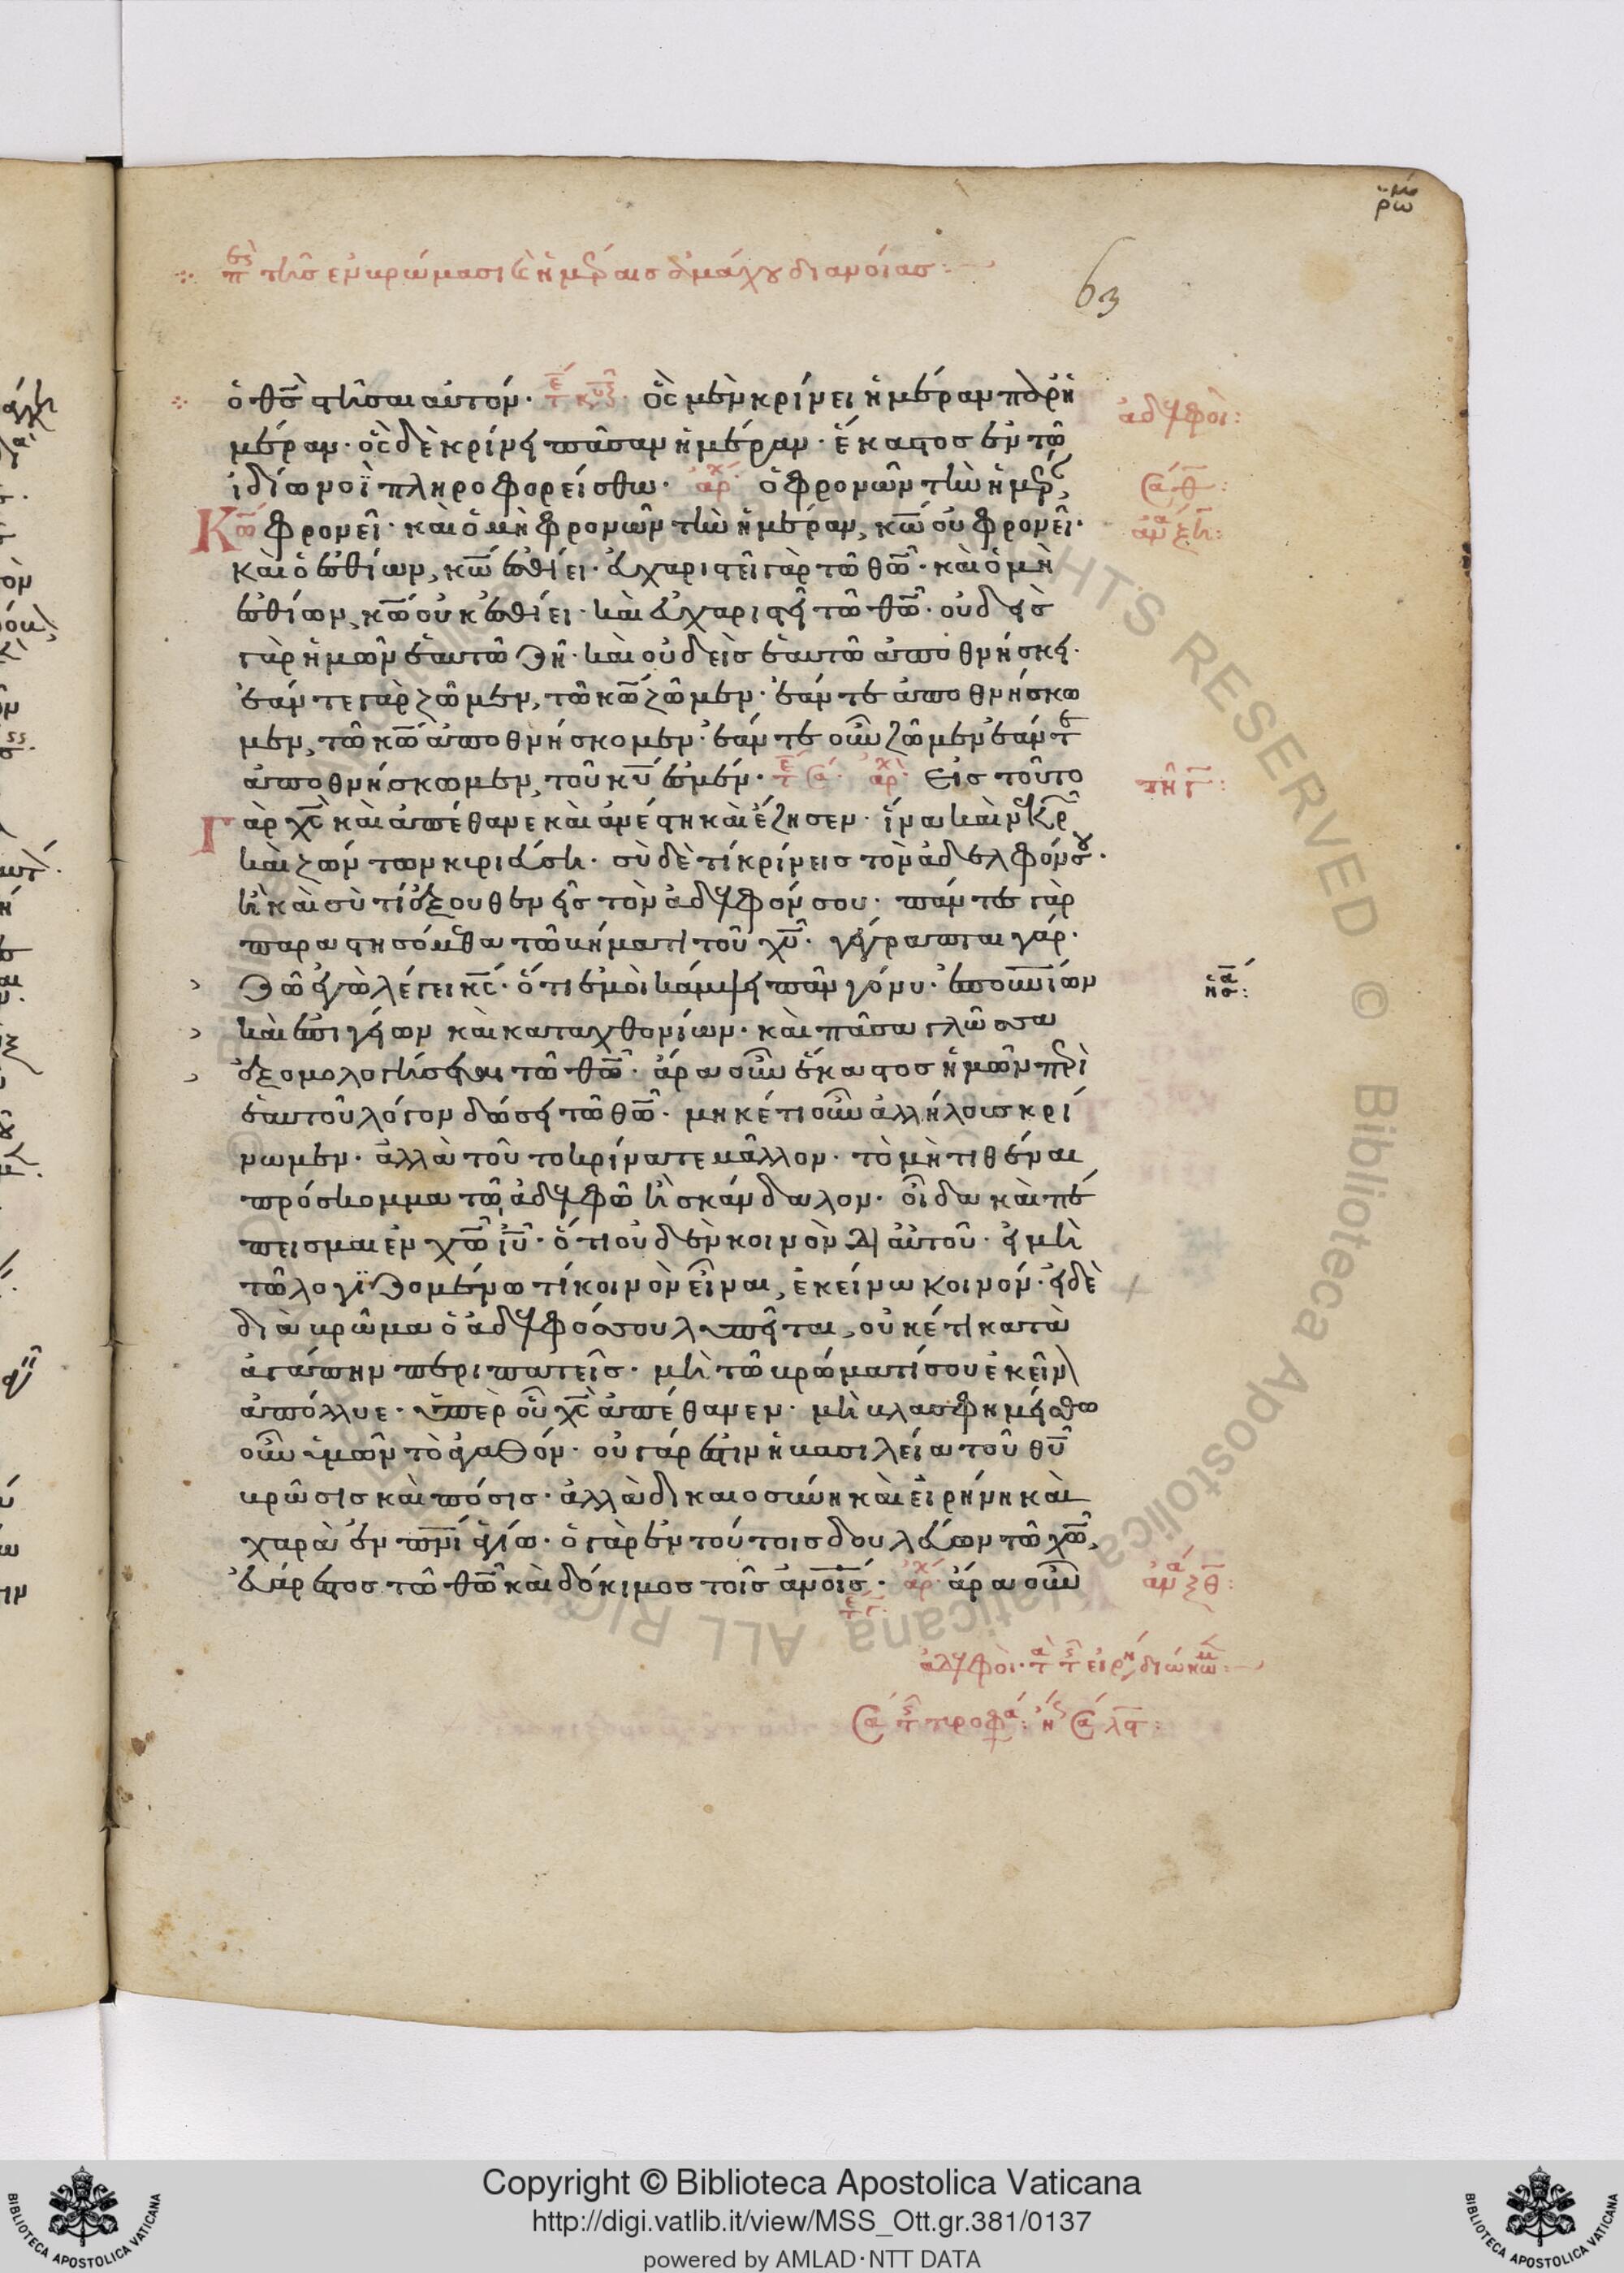 ῥω
63
περὶ τῆς ἐν βρώμασι καὶ ἡμέραις ἀμάχου διανοίας:
ὁ θς στῆσαι αὐτόν· ὃς μὲν κρίνει ἡμέραν παρ ἡ
ἀδελφοί:
μέραν· ὃς δὲ κρίνει πᾶσαν ἡμέραν· ἕκαστος ἐν τῶ
ἰδίω νοῒ πληροφορείσθω· ἀρχ ὁ φρονῶν τὴν ἡμέρ,
Κω φρονεῖ· καὶ ὁ μὴ φρονῶν τὴν ἡμέραν, κω οὐ φρονεῖ·
καὶ ὁ ἐσθίων, κω ἐσθίει· εὐχαριστεῖ γὰρ τῶ θω· καὶ ὁ μὴ
ἐσθίων, κω οὐκ ἐσθίει· καὶ εὐχαριστεῖ τῶ θω· οὐδεὶς
γὰρ ἡμῶν ἑαυτῶ ζῆ· καὶ οὐδεὶς ἑαυτῶ ἀποθνήσκει·
ἐάν τε γὰρ ζῶμεν, τῶ κω ζῶμεν· ἐάν τε ἀποθνήσκω
μεν, τῶ κω ἀποθνήσκομεν· ἐάν τε οὖν ζῶμεν ἐάν τε
ἀποθνήσκωμεν, τοῦ κυ ἐσμέν· ἀρχ· εἰς τοῦτο
Γὰρ χς καὶ ἀπέθανε καὶ ἀνέστη καὶ ἔζησεν· ἵνα καὶ νεκρ
καὶ ζώντων κυριεύση· σὺ δὲ τί κρίνεις τὸν ἀδελφόν σου·
ἢ καὶ σὺ τί ἐξουθενεῖς τὸν ἀδελφόν σου· πάντες γὰρ
παραστησόμεθα τῶ βήματι τοῦ χυ· γέγραπται γάρ·
Ζῶ ἐγὼ λέγει κς· ὅτι ἐμοὶ κάμψει πᾶν γόνυ· ἐπουνίων
ἠσα:
καὶ ἐπιγείων καὶ καταχθονίων· καὶ πᾶσα γλῶσσα
ἐξομολογήσεται τῶ θω· ἄρα οὖν ἕκαστος ἡμῶν περὶ
ἑαυτοῦ λόγον δώσει τῶ θω· μηκέτι οὖν ἀλλήλους κρί
νωμεν· ἀλλὰ τοῦτο κρίνατε μᾶλλον· τὸ μὴ τιθέναι
πρόσκομμα τῶ ἀδελφῶ ἢ σκάνδαλον· οἶδα καὶ πέ
πεισμαι ἐν χω ιυ· ὅτι οὐδὲν κοινὸν δι αὐτοῦ· εἰ μὴ
τῶ λογιζομένω τί κοινὸν εἶναι, ἐκείνω κοινόν· εἰ δὲ
διὰ βρῶμα ὁ ἀδελφός σου λυπεῖται, οὐκέτι κατὰ
ἀγάπην περιπατεῖς· μὴ τῶ βρώματί σου ἐκεῖν
ἀπόλλυε· ὑπὲρ οὗ χς ἀπέθανεν· μὴ βλασφημείσθω
οὖν ὑμῶν τὸ ἀγαθόν· οὐ γάρ ἐστιν ἡ βασιλεία τοῦ θυ
βρῶσις καὶ πόσις· ἀλλὰ δικαιοσύνη καὶ εἰρήνη καὶ
χαρὰ ἐν πνι ἁγίω· ὁ γὰρ ἐν τούτοις δουλεύων τῶ χω,
εὐάρεστος τῶ θω καὶ δόκιμος τοῖς ανοις· ἀρχ· ἄρα οὖν
Copyright © Biblioteca Apostolica Vaticana
http://digi.vatlib.it/view/MSS_Ott.gr.381/0137
powered by AMLAD·NTT DATA